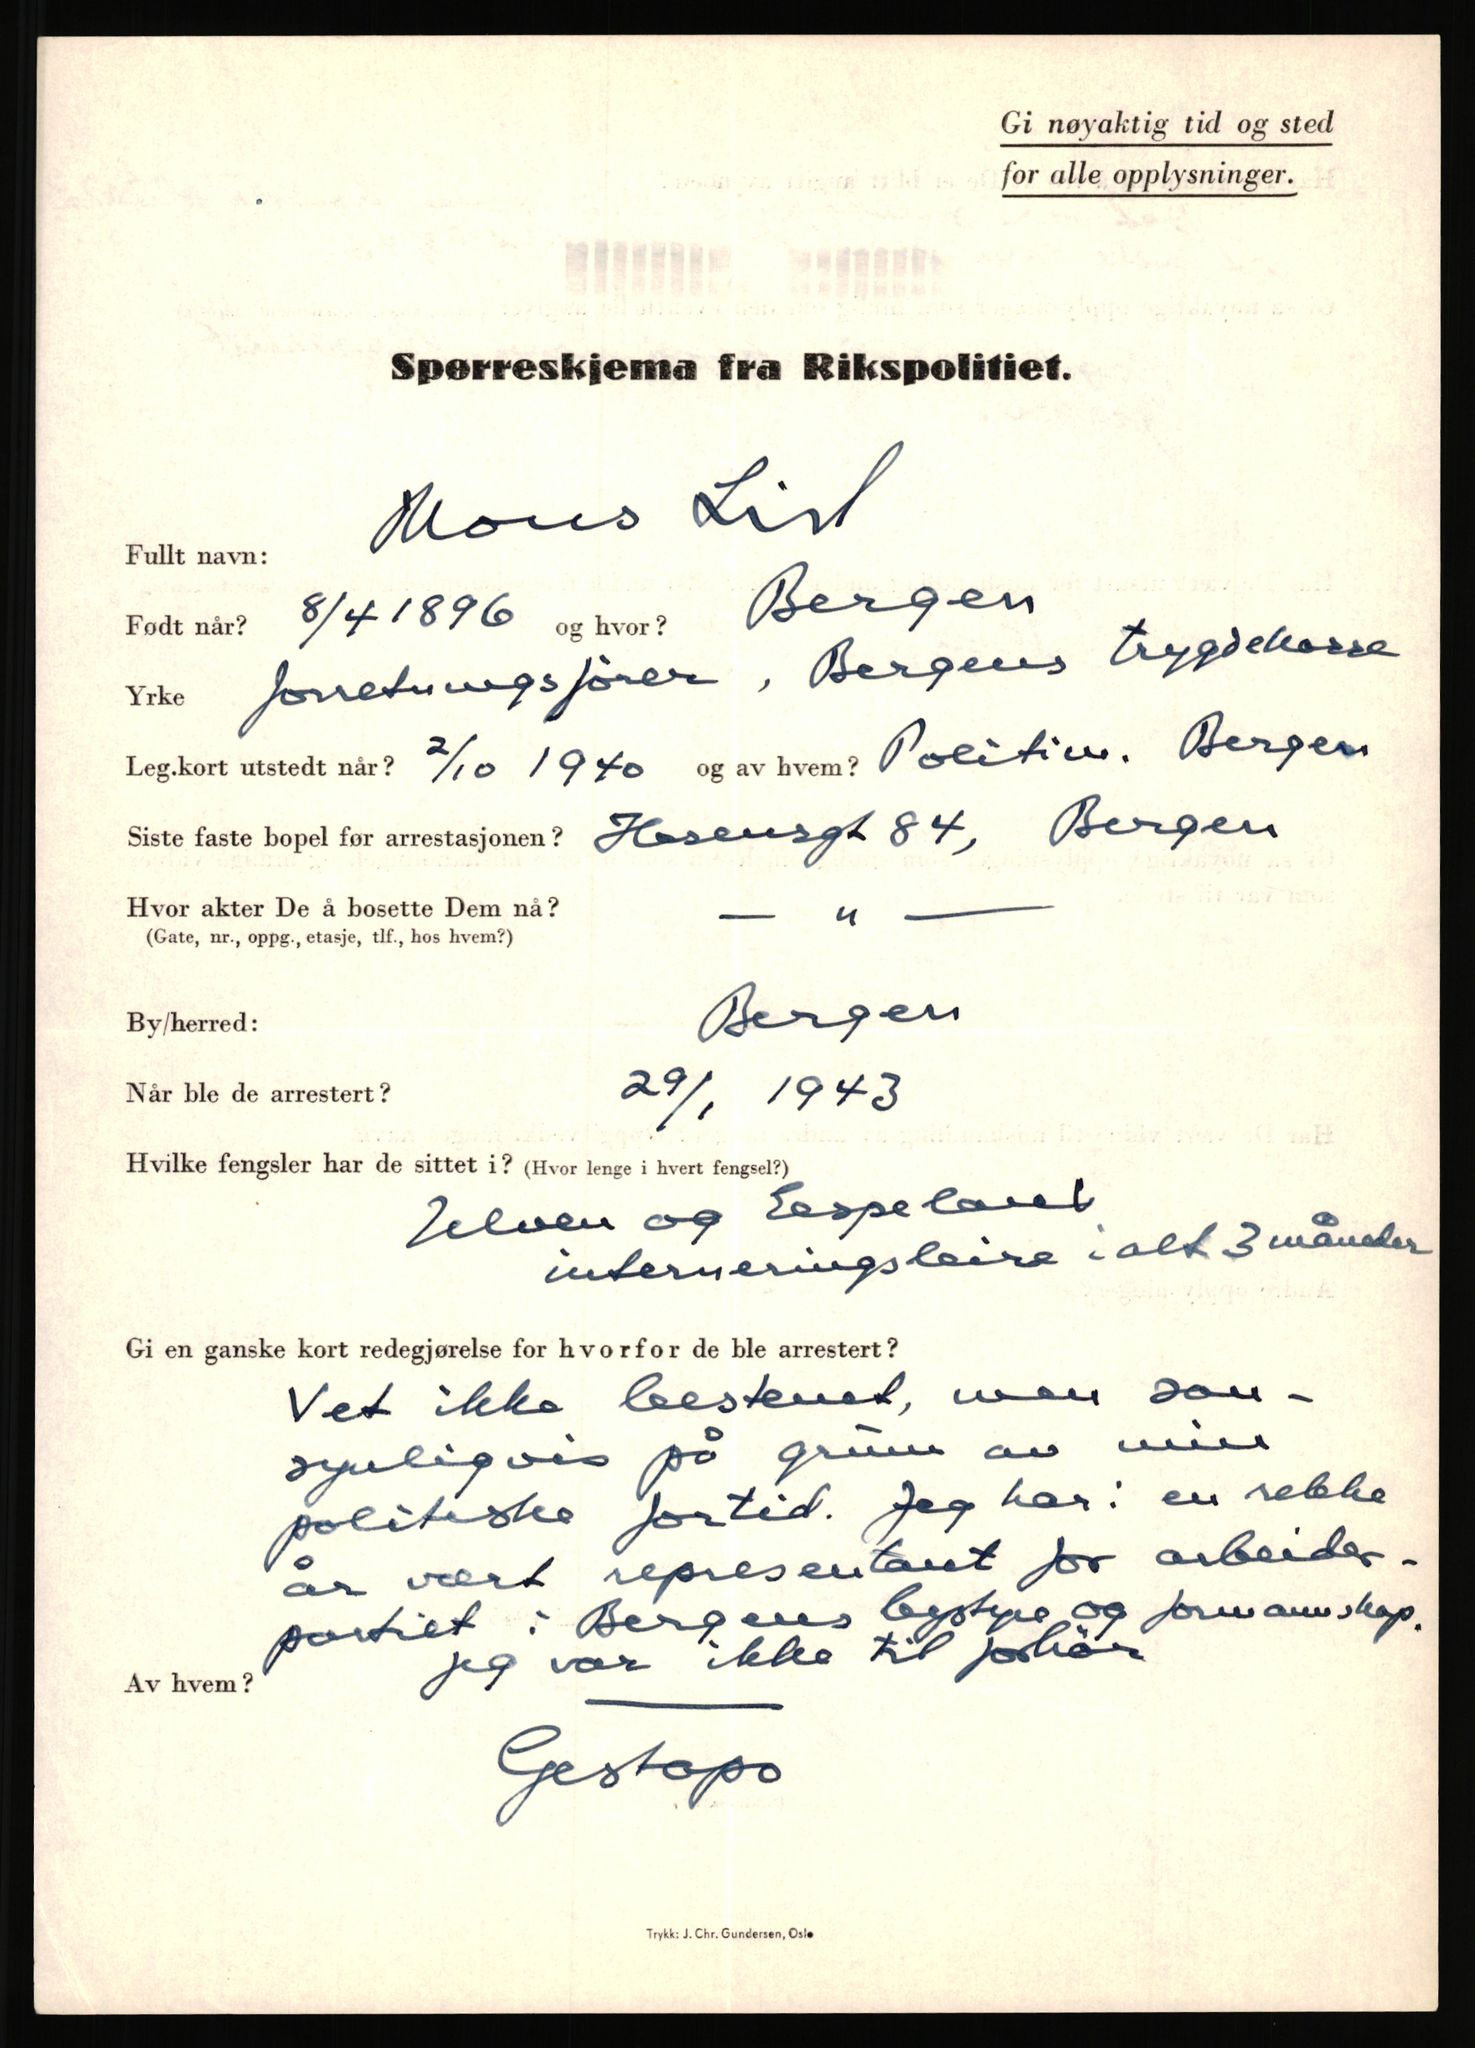 Gi nøyaktig tid og sted
for alle opplysninger.
Spørreskjema fra Rikspolitiet.
Fullt navn: Mons Lid
Født når? 8/4 1896 og hvor? Bergen
Yrke forretningsfører, Bergens trygdekasse
Leg.kort utstedt når? 2/10 1940 og av hvem? Politim. Bergen
Siste faste bopel før arrestasjonen? 84, Bergen
Hvor akter De å bosette Dem nå? — " —
(Gate, nr., oppg., etasje, tlf., hos hvem?)
By/herred: Bergen
Når ble de arrestert? 29/1 1943
Hvilke fengsler har de sittet i? (Hvor lenge i hvert fengsel?)
Ulven og Espeland
interneringsleire i alt 3 måneder
Gi en ganske kort redegjørelse for hvorfor de ble arrestert?
Vet ikke bestemt, men san-
synligvis på grunn av min
politiske fortid. Jeg har i en rekke
år vært representant for arbeider-
partiet i Bergens bystyre og formannskap.
Jeg var ikke til forhør
Av hvem?
Gestapo
Trykk: J. Chr. Gundersen, Oslo